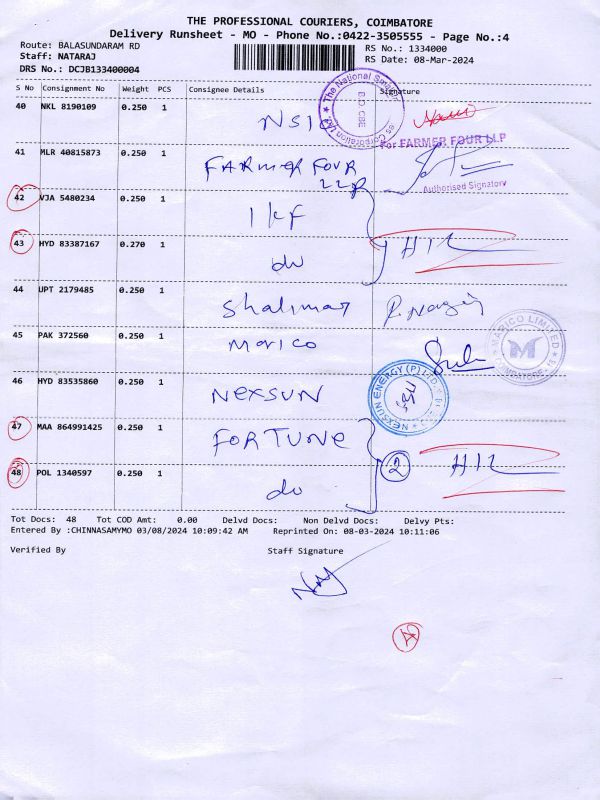 THE PROFESSIONAL COURIERS, COIMBATORE
Delivery Runsheet - MO - Phone No.:0422-3505555 - Page No.:4
Route: BALASUNDARAM RD RS No.: 1334000
Staff: NATARAJ RS Date: 08-Mar-2024
DRS No.: DCJB133400004
S No Consignment No Weight PCS Consignee Details Signature
40 NKL 8190109 0.250 1 NSIC
The National Small
es Corporation Ltd.
CBE
41 MLR 40815873 0.250 1 FARMER FOUR
LLP
For FARMER FOUR LLP
Authorised Signatory
42 VJA 5480234 0.250 1 IKF
43 HYD 83387167 0.270 1 do
44 UPT 2179485 0.250 1 Shalimar
45 PAK 372560 0.250 1 Marico
MARICO LIMITED
COIMBATORE
46 HYD 83535860 0.250 1 NEXSUN
NEXSUN ENERGY (P) LTD.
47 MAA 864991425 0.250 1 FORTUNE
2
48 POL 1340597 0.250 1 do
Tot Docs: 48 Tot COD Amt: 0.00 Delvd Docs: Non Delvd Docs: Delvy Pts:
Entered By :CHINNASAMYMO 03/08/2024 10:09:42 AM Reprinted On: 08-03-2024 10:11:06
Verified By Staff Signature